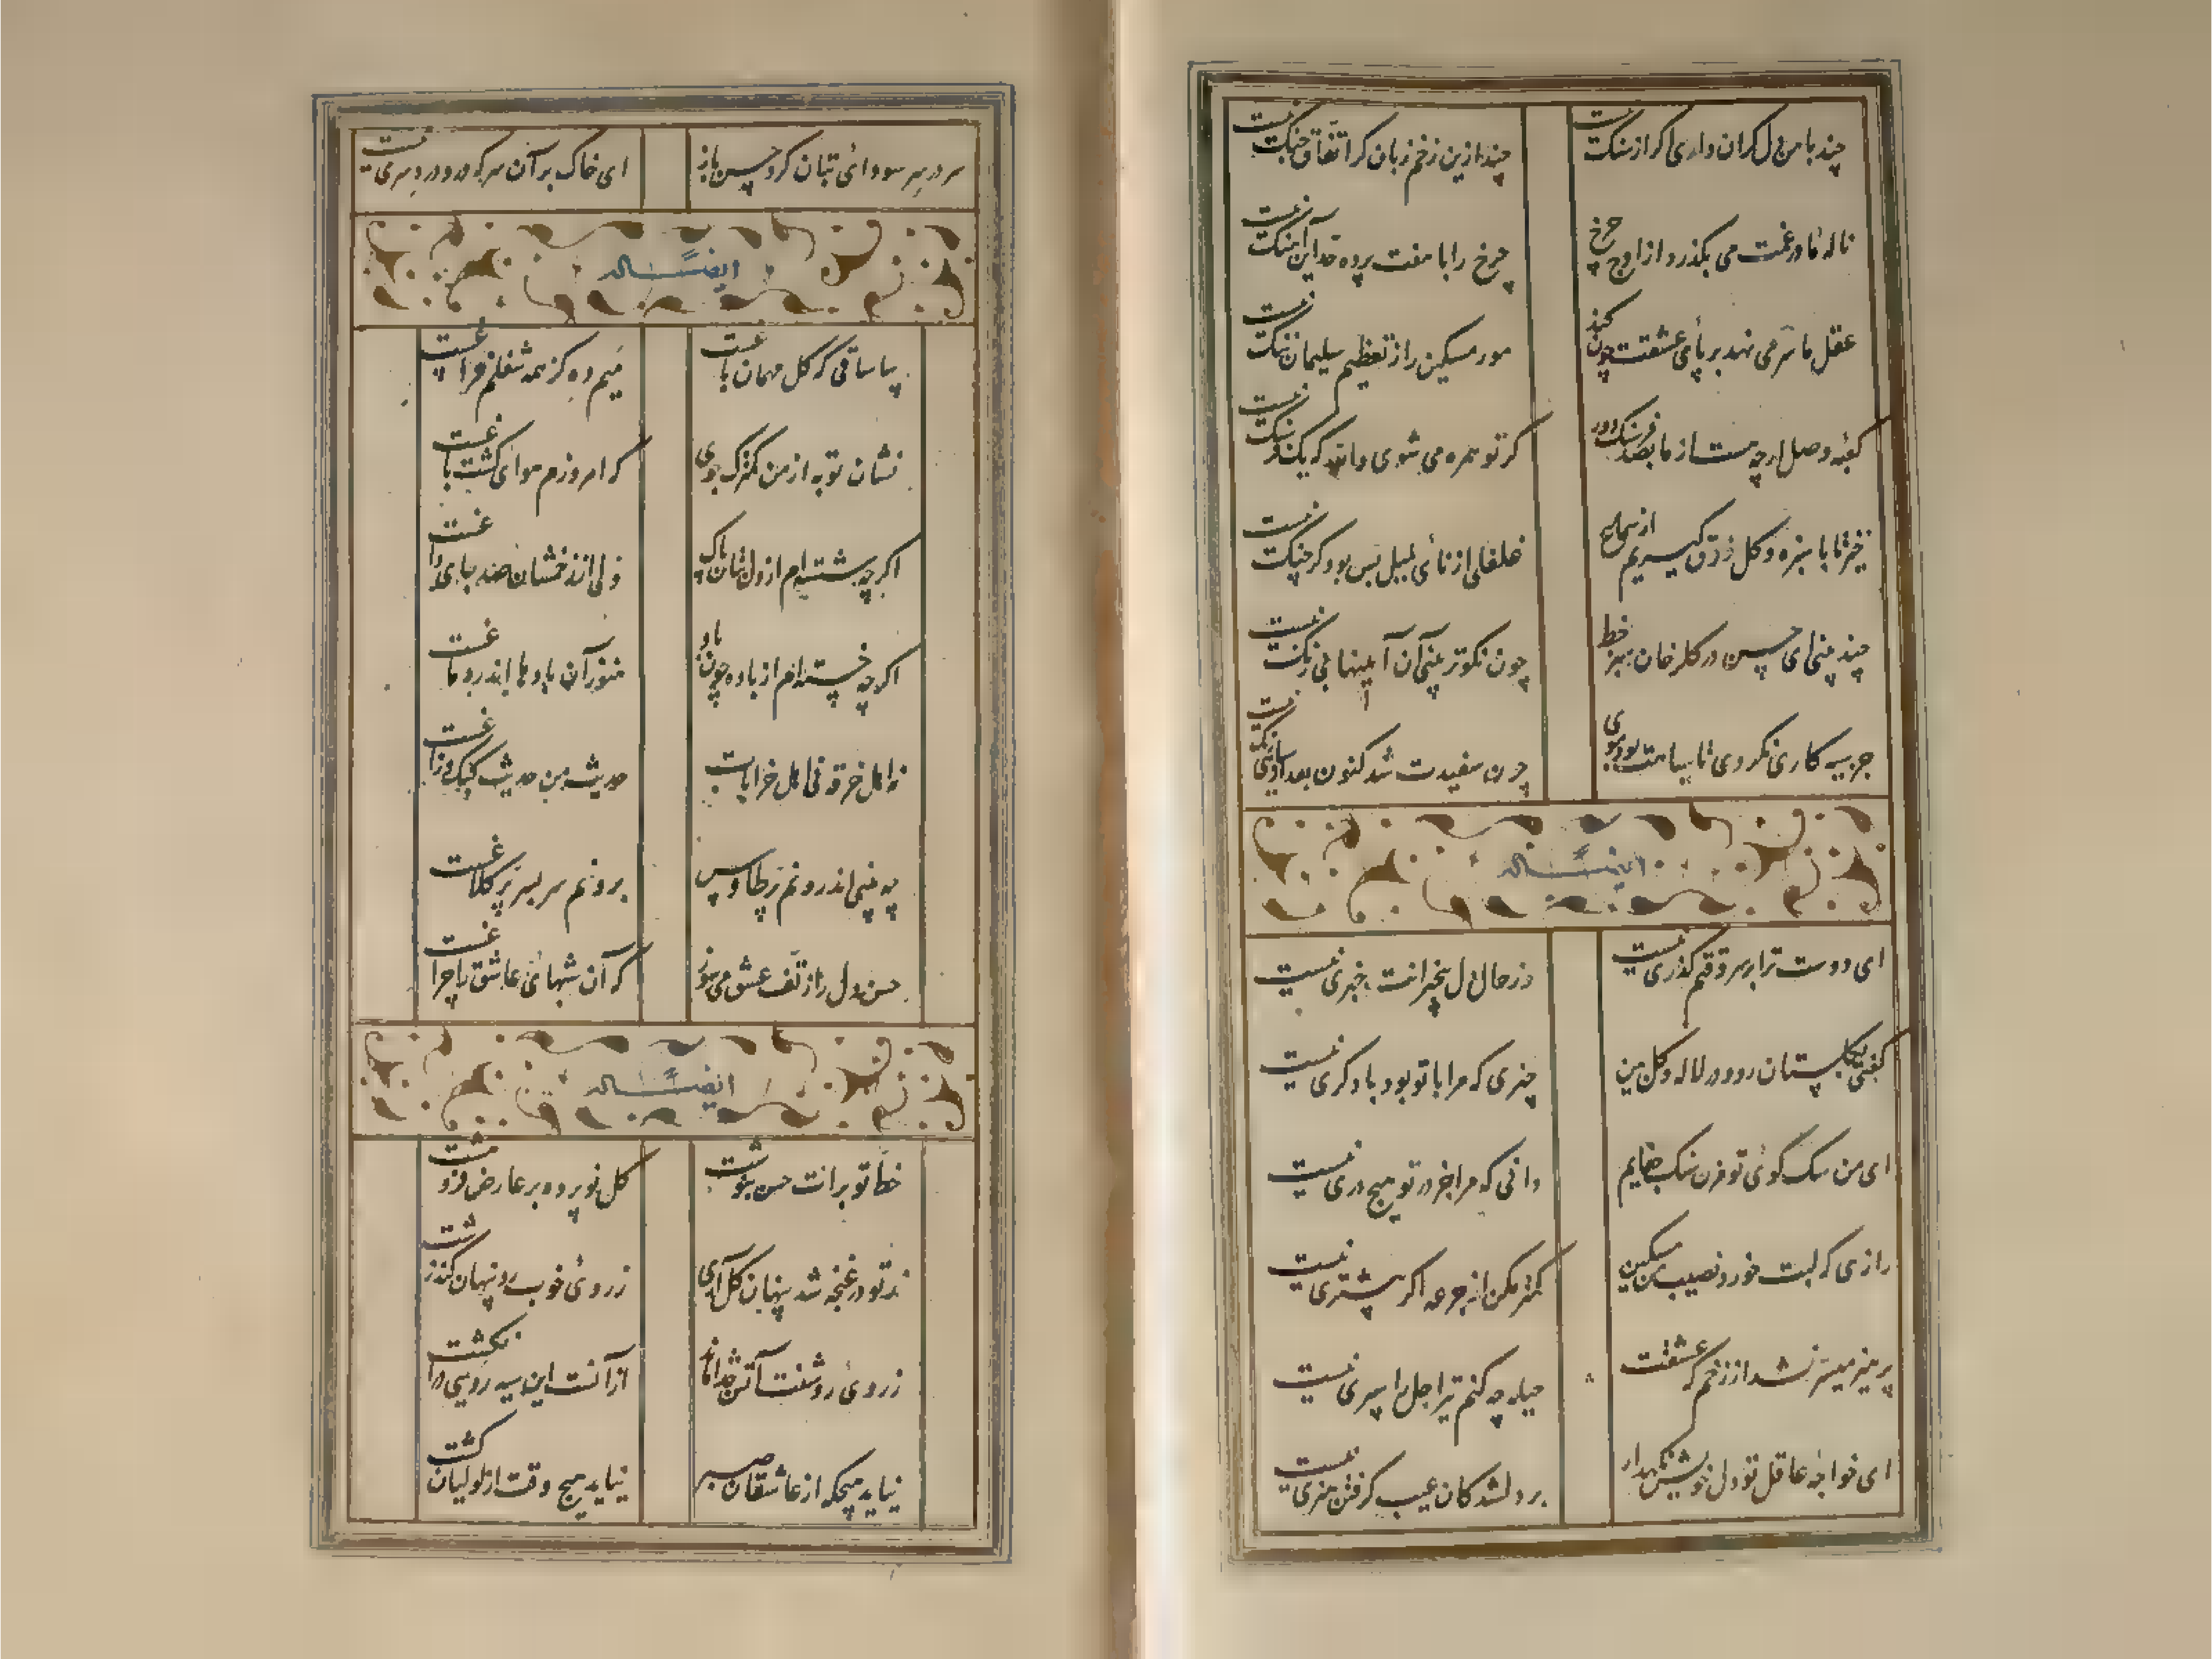 چند با من دل گران داری گر از سنگت نیست
چند ازین زخم زبان گر اتفاق جنگت نیست
ناله ما در غمت می بگذرد از اوج چرخ
چرخ را با هفت پرده قد این آهنگت نیست
عقل ما سر می نهد بر پای عشقت چون کند
مور مسکین را ز تعظیم سلیمان ننگت نیست
کعبه وصل ارچه هست از ما بصد فرسنگ دور
گر تو همره می شوی دانم که یک فرسنگت نیست
خیز تا با سبزه و گل ذوق گیریم از سماع
غلغلی از نای بلبل بس بود گر چنگت نیست
چند بینی ای حسن در گلرخان سبز خط
چون نکوتر بینی آن آیینها بی زنگت نیست
جز سیه کاری نکردی تا سیاهت بود موی
چون سفیدت شد کنون بعد از سیاهی رنگت نیست
ایضاً له
ای دوست ترا بر سر وقتم گذری نیست
وز حال دل بیخبرانت خبری نیست
گفتی بگلستان رو و در لاله و گل بین
چیزی که مرا با تو بود با دگری نیست
ای من سگ کوی تو مزن سنگ جفایم
دانی که مرا جز در تو هیچ دری نیست
رازی که لبت خورد نصیب من مسکین
کمتر مکن از جرعه اگر بیشتری نیست
پرهیز میسر نشد از زخم که عشقت
حیله چه کنم تیر اجل را سپری نیست
ای خواجه عاقل تو دل خویش نگهدار
بر دلشدگان عیب گرفتن هنری نیست
سر در سر سودای بتان کرد حسن باز
ای خاک بر آن سر که درو درد سری نیست
ایضاً له
بیا ساقی که گل مهمان باغست
میم ده کز همه شغلم فراغست
نشان توبه از من کمترک جوی
که امروزم هوای گشت باغست
اگرچه شسته ام از دل نشان پاک
ولی اندر خشان صد جای داغست
اگرچه خسته ام از باده چون باد
هنوز آن بادها اندر دماغست
نه اهل خرقه نی اهل خرابات
حدیث من حدیث کبک و زاغست
چه بینی اندرونم پر طاوس
برونم سر بسر پر کلاغست
حسن دل را ز تف عشق می سوز
که آن شبهای عاشق را چراغست
ایضاً له
خط تو برات حسن بنوشت
گل نو پرده بر عارض فرو هشت
ز تو در غنچه شد پنهان گل آری
ز روی خوب رو پنهان کند زشت
ز روی روشنت آتش جدا ماند
از آنست این سیه رویی در انگشت
نیاید هیچگه از عاشقان صبر
نیاید هیچ وقت از لولیان کشت